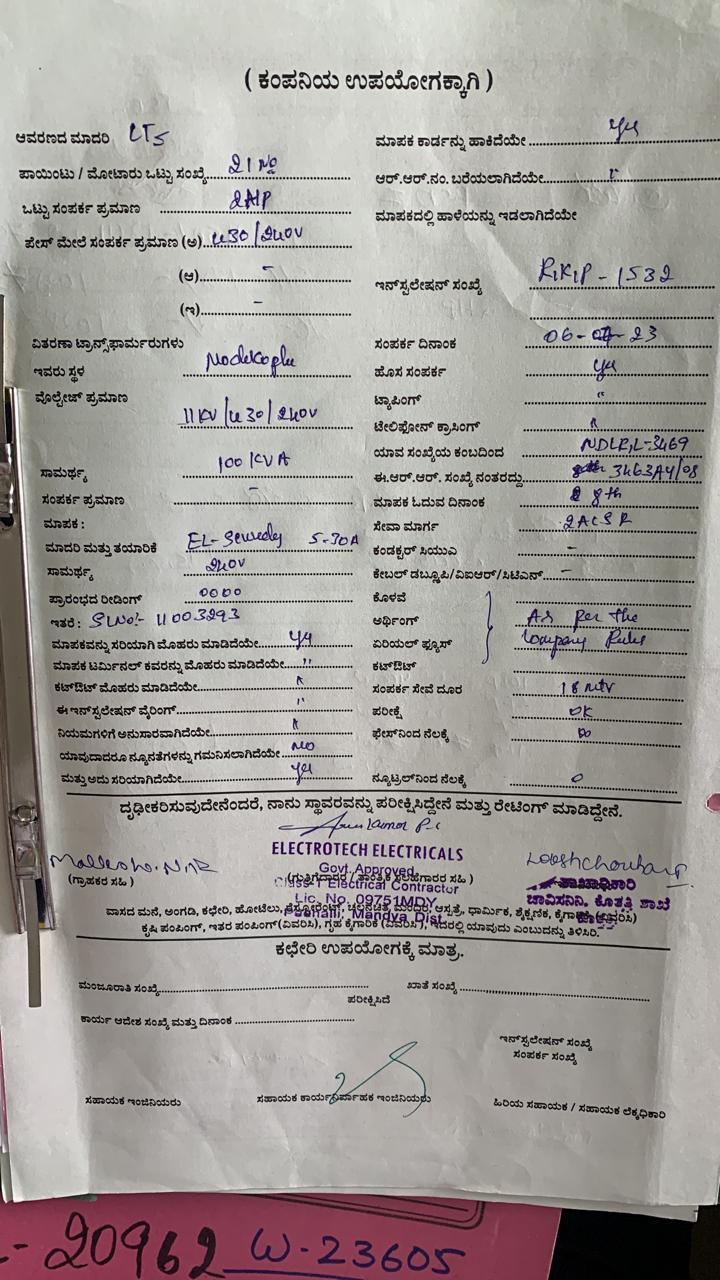 ( ಕಂಪನಿಯ ಉಪಯೋಗಕ್ಕಾಗಿ )
ಆವರಣದ ಮಾದರಿ LT5
ಪಾಯಿಂಟು / ಮೋಟಾರು ಒಟ್ಟು ಸಂಖ್ಯೆ 21 No
ಒಟ್ಟು ಸಂಪರ್ಕ ಪ್ರಮಾಣ 2HP
ಪೇಸ್ ಮೇಲೆ ಸಂಪರ್ಕ ಪ್ರಮಾಣ (ಅ) 430/240V
(ಆ) -
(ಇ) -
ವಿತರಣಾ ಟ್ರಾನ್ಸ್‌ಫಾರ್ಮರುಗಳು
ಇವರು ಸ್ಥಳ
ವೊಲ್ಟೇಜ್ ಪ್ರಮಾಣ
11KV/430/240V
ಸಾಮರ್ಥ್ಯ 100 KVA
ಸಂಪರ್ಕ ಪ್ರಮಾಣ -
ಮಾಪಕ :
ಮಾದರಿ ಮತ್ತು ತಯಾರಿಕೆ EL-Sewedy 5-30A
ಸಾಮರ್ಥ್ಯ 240V
ಪ್ರಾರಂಭದ ರೀಡಿಂಗ್ 0000
ಇತರೆ : SlNo:- 11003293
ಮಾಪಕವನ್ನು ಸರಿಯಾಗಿ ಮೊಹರು ಮಾಡಿದೆಯೇ yes
ಮಾಪಕ ಟರ್ಮಿನಲ್ ಕವರನ್ನು ಮೊಹರು ಮಾಡಿದೆಯೇ "
ಕಟ್‌ಔಟ್ ಮೊಹರು ಮಾಡಿದೆಯೇ "
ಈ ಇನ್‌ಸ್ಟಲೇಷನ್ ವೈರಿಂಗ್ "
ನಿಯಮಗಳಿಗೆ ಅನುಸಾರವಾಗಿದೆಯೇ "
ಯಾವುದಾದರೂ ನ್ಯೂನತೆಗಳನ್ನು ಗಮನಿಸಲಾಗಿದೆಯೇ NO
ಮತ್ತು ಅದು ಸರಿಯಾಗಿದೆಯೇ yes
ಮಾಪಕ ಕಾರ್ಡನ್ನು ಹಾಕಿದೆಯೇ yes
ಆರ್.ಆರ್.ನಂ. ಬರೆಯಲಾಗಿದೆಯೇ "
ಮಾಪಕದಲ್ಲಿ ಹಾಳೆಯನ್ನು ಇಡಲಾಗಿದೆಯೇ
ಇನ್‌ಸ್ಟಲೇಷನ್ ಸಂಖ್ಯೆ RKIP-1532
ಸಂಪರ್ಕ ದಿನಾಂಕ 06-07-23
ಹೊಸ ಸಂಪರ್ಕ yes
ಟ್ಯಾಪಿಂಗ್ "
ಟೇಲಿಫೋನ್ ಕ್ರಾಸಿಂಗ್ "
ಯಾವ ಸಂಖ್ಯೆಯ ಕಂಬದಿಂದ NDLR,L-3469
ಈ.ಆರ್.ಆರ್. ಸಂಖ್ಯೆ ನಂತರದ್ದು 3463A4/08
ಮಾಪಕ ಓದುವ ದಿನಾಂಕ 8th
ಸೇವಾ ಮಾರ್ಗ 2ACSR
ಕಂಡಕ್ಟರ್ ಸಿಯುಎ -
ಕೇಬಲ್ ಡಬ್ಲೂಪಿ/ವಿಐಆರ್/ಸಿಟಿಎನ್ -
ಕೊಳವೆ
ಅರ್ಥಿಂಗ್ As per the
ಏರಿಯಲ್ ಫ್ಯೂಸ್ Company Rules
ಕಟ್‌ಔಟ್
ಸಂಪರ್ಕ ಸೇವೆ ದೂರ 18 mtr
ಪರೀಕ್ಷೆ OK
ಫೇಸ್‌ನಿಂದ ನೆಲಕ್ಕೆ ∞
ನ್ಯೂಟ್ರಲ್‌ನಿಂದ ನೆಲಕ್ಕೆ 0
ದೃಢೀಕರಿಸುವುದೇನೆಂದರೆ, ನಾನು ಸ್ಥಾವರವನ್ನು ಪರೀಕ್ಷಿಸಿದ್ದೇನೆ ಮತ್ತು ರೇಟಿಂಗ್ ಮಾಡಿದ್ದೇನೆ.
ELECTROTECH ELECTRICALS
Govt. Approved
Class-1 Electrical Contractor
Lic. No. 09751MDY
Mandya Dist.
(ಗ್ರಾಹಕರ ಸಹಿ )
ಶಾಖಾಧಿಕಾರಿ
ಚಾವಿಸನಿನಿ, ಕೊತ್ತತ್ತಿ ಶಾಖೆ
ವಾಸದ ಮನೆ, ಅಂಗಡಿ, ಕಛೇರಿ, ಹೋಟೆಲು, ರೆಸ್ಟೋರೆಂಟ್, ಚಲನಚಿತ್ರ ಮಂದಿರ, ಆಸ್ಪತ್ರೆ, ಧಾರ್ಮಿಕ, ಶೈಕ್ಷಣಿಕ, ಕೈಗಾರಿಕೆ (ವಿವರಿಸಿ)
ಕೃಷಿ ಪಂಪಿಂಗ್, ಇತರ ಪಂಪಿಂಗ್ (ವಿವರಿಸಿ), ಗೃಹ ಕೈಗಾರಿಕೆ (ವಿವರಿಸಿ), ಇದರಲ್ಲಿ ಯಾವುದು ಎಂಬುದನ್ನು ತಿಳಿಸಿರಿ.
ಕಛೇರಿ ಉಪಯೋಗಕ್ಕೆ ಮಾತ್ರ.
ಮಂಜೂರಾತಿ ಸಂಖ್ಯೆ
ಖಾತೆ ಸಂಖ್ಯೆ
ಪರೀಕ್ಷಿಸಿದೆ
ಕಾರ್ಯ ಆದೇಶ ಸಂಖ್ಯೆ ಮತ್ತು ದಿನಾಂಕ
ಇನ್‌ಸ್ಟಲೇಷನ್ ಸಂಖ್ಯೆ
ಸಂಪರ್ಕ ಸಂಖ್ಯೆ
ಸಹಾಯಕ ಇಂಜಿನಿಯರು
ಸಹಾಯಕ ಕಾರ್ಯನಿರ್ವಾಹಕ ಇಂಜಿನಿಯರು
ಹಿರಿಯ ಸಹಾಯಕ / ಸಹಾಯಕ ಲೆಕ್ಕಧಿಕಾರಿ
-20962 W-23605